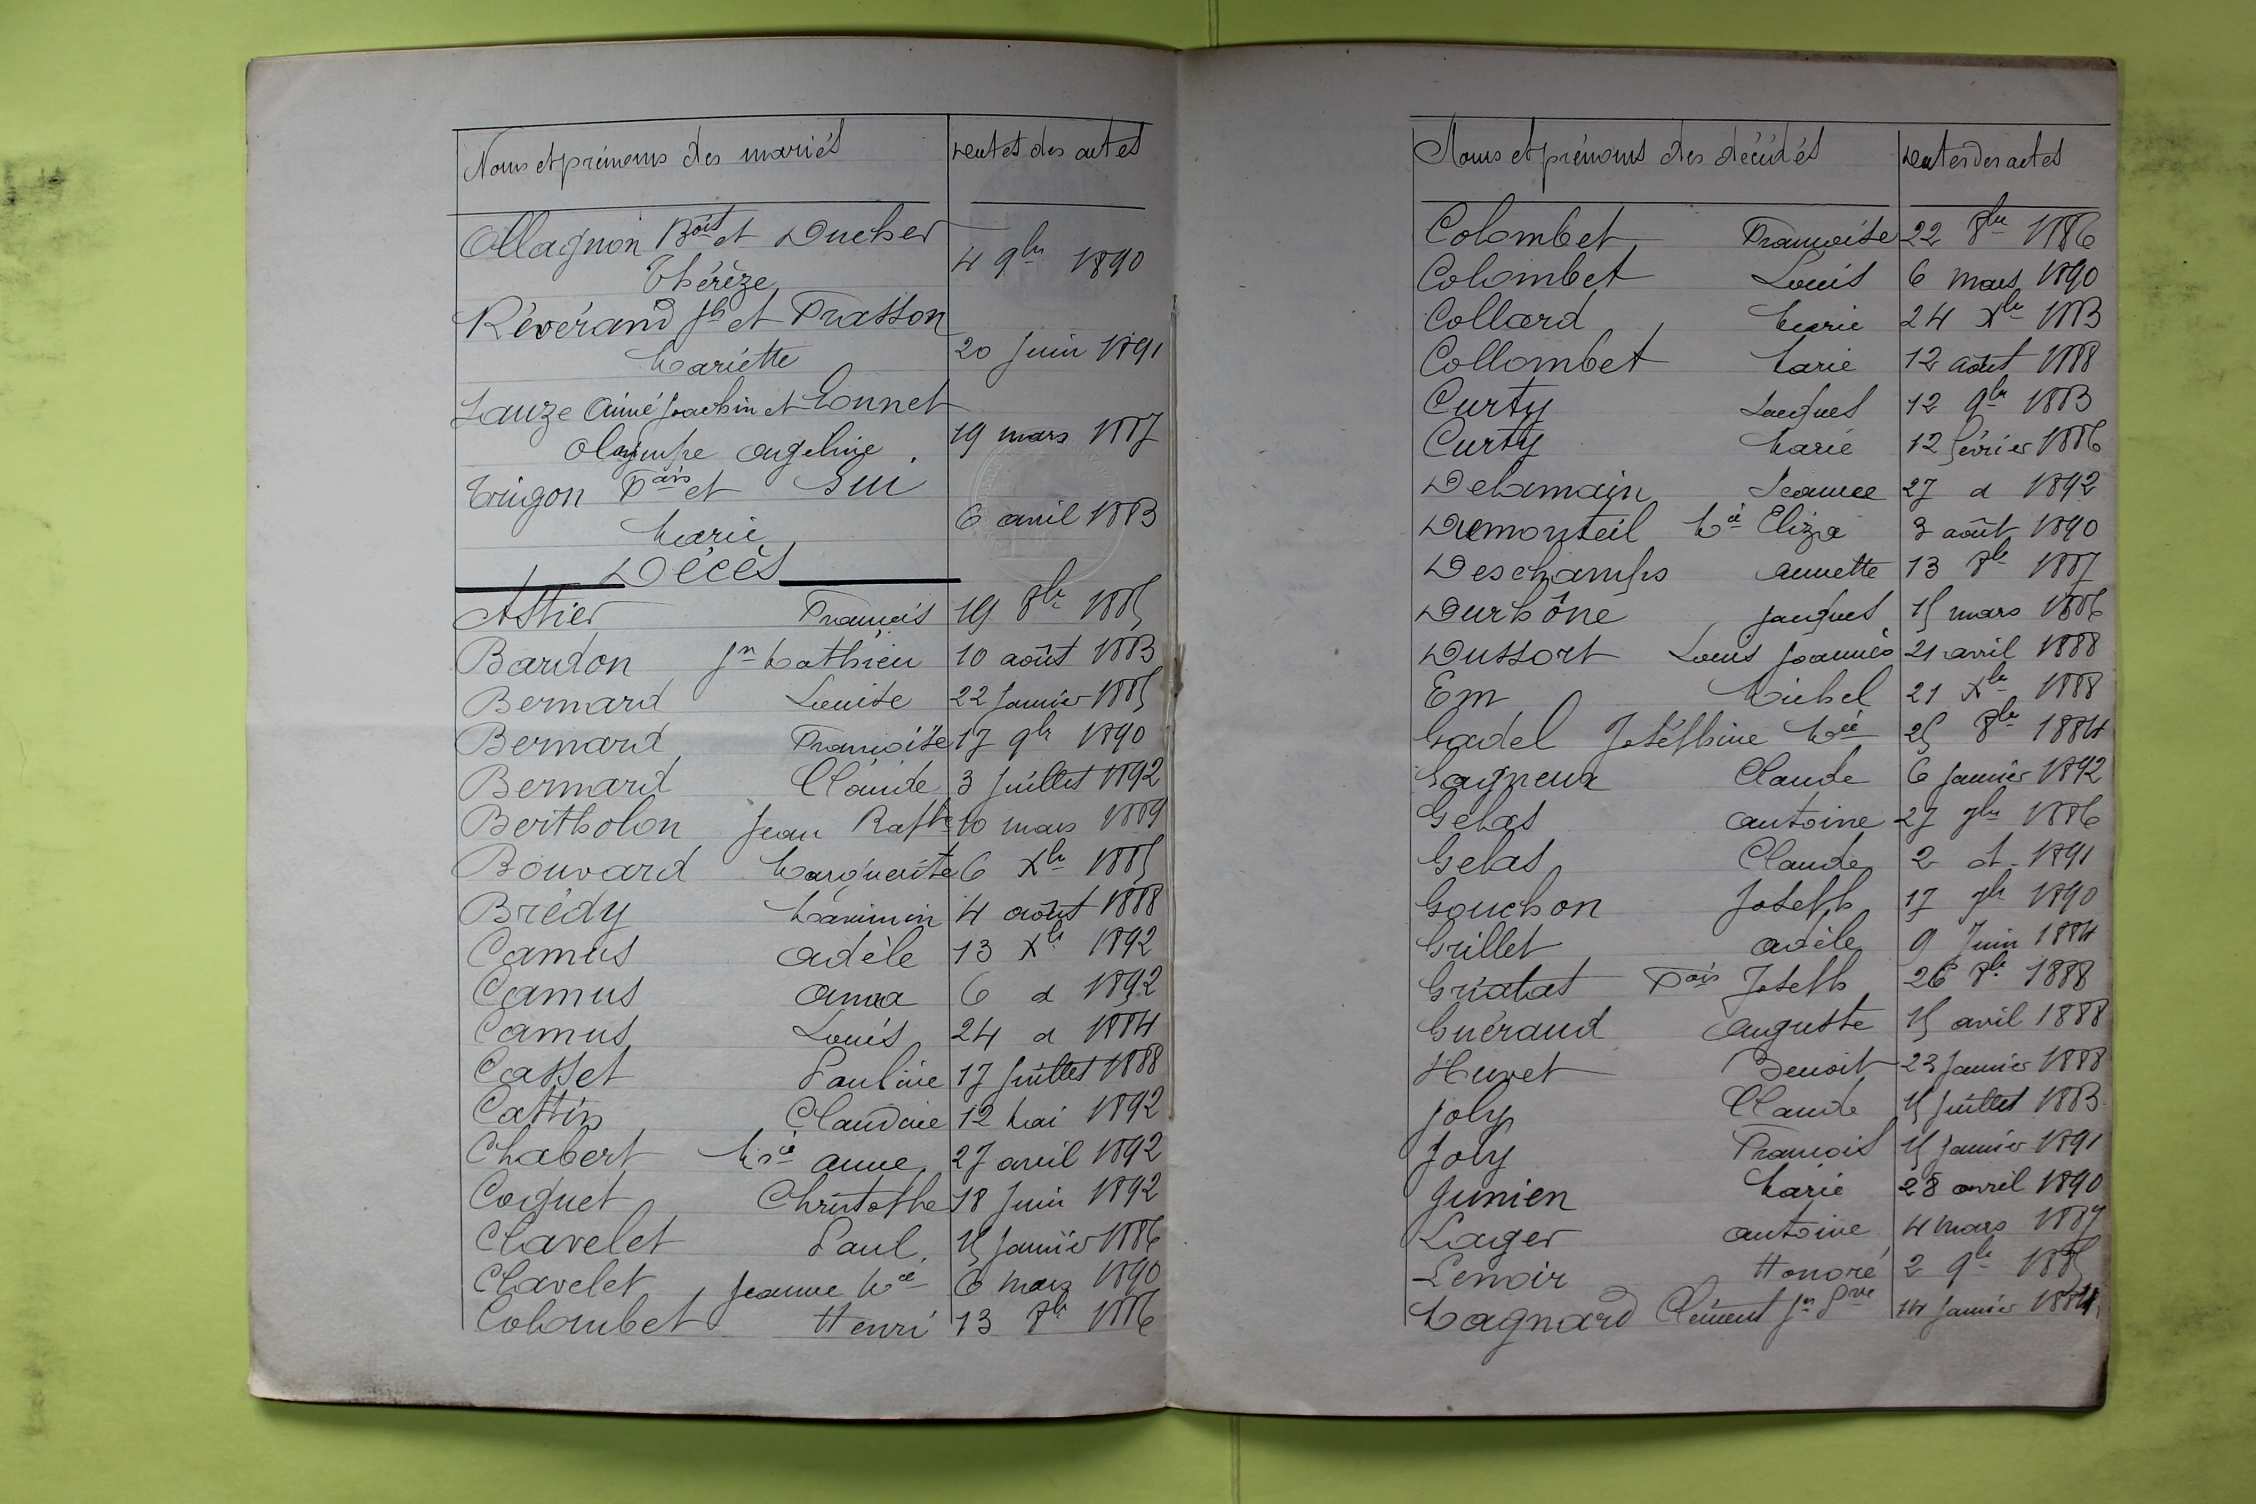 Noms et prénoms des mariés Dates des actes
Ollagnon Boit et Ducher
Thérèze 4 9bre 1890
Révérand Jh et Frasson
Mariette 20 Juin 1891
Lauze Aimé Joachin et Monnet
Olympe Angeline 19 mars 1887
Trigon Fçois et Sui
Marie 6 avril 1883
Décès
Astier François 19 8bre 1885
Bardon Jn Mathieu 10 août 1883
Bernard Louise 22 Janvier 1885
Bernard Françoise 17 9bre 1890
Bernard Claude 3 Juillet 1892
Bertholon Jean 10 mars 1889
Bouvard Marguerite 6 Xbre 1885
Brédy Maximin 4 août 1888
Camus Adèle 13 Xbre 1892
Camus Anna 6 d 1892
Camus Louis 24 d 1884
Casset Pauline 17 Juillet 1888
Cattin Claudine 12 Mai 1892
Chabert Mie Anne 27 avril 1892
Coquet Christophe 18 Juin 1892
Clavelet Paul 15 Janvier 1886
Clavelet Jeanne Mie 6 mars 1890
Colombet Henri 13 8bre 1886
Noms et prénoms des décédés Dates des actes
Colombet Françoise 22 8bre 1886
Colombet Louis 6 mars 1890
Collard Marie 24 Xbre 1883
Collombet Marie 12 août 1888
Curty Jacques 12 9bre 1883
Curty Marie 12 février 1886
Delamain Jeanne 27 d 1892
Dumonteil Mie Eliza 3 août 1890
Deschamps Annette 13 8bre 1887
Durhône Jacques 15 mars 1886
Dussort Louis Joannès 21 avril 1888
Em Michel 21 Xbre 1888
Gadel Joséphine Mie 25 8bre 1884
Gagneux Claude 6 Janvier 1892
Gelas Antoine 27 7bre 1886
Gelas Claude 2 d 1891
Gouchon Joseph 17 7bre 1890
Grillet Adèle 9 Juin 1884
Griatat Fçois Joseph 26 8bre 1888
Guéraud Auguste 15 avril 1888
Huvet Benoit 23 Janvier 1888
Joly Claude 15 Juillet 1883
Joly François 15 Janvier 1891
Junien Marie 28 avril 1890
Lager Antoine 4 mars 1887
Lenoir Honoré 2 9bre 1885
Magnard Clément Jn Pre 14 Janvier 1884